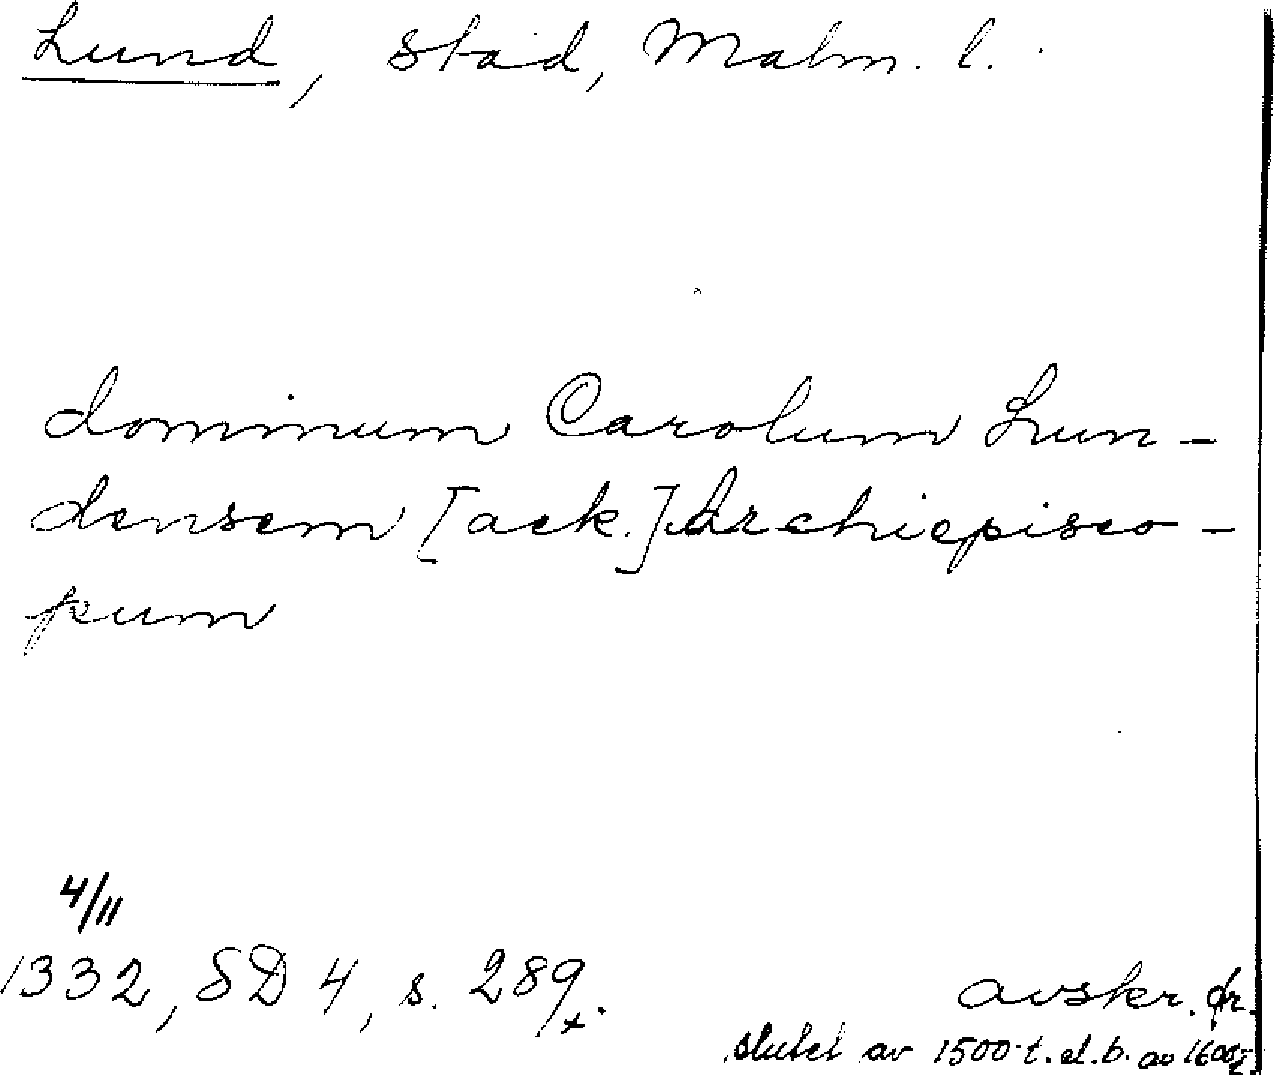 Lund, stad, Malm. l.
dominum Carolum Lun-
densem [ack.] Archiepisco-
pum
4/11
1332, SD 4, s. 289.
avskr. fr.
slutet av 1500-t. el. b. av 1600-t.